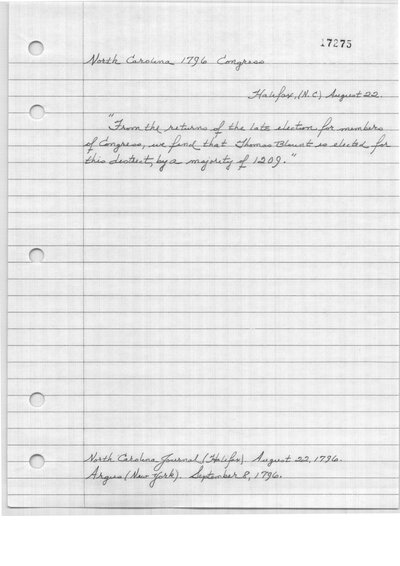 17275
North Carolina 1796 Congress
Halifax, (N.C.) August 22.
"From the returns of the late election for members
of Congress, we find that Thomas Blount is elected for
this district, by a majority of 1209."
North Carolina Journal (Halifax). August 22, 1796.
Argus (New York). September 8, 1796.